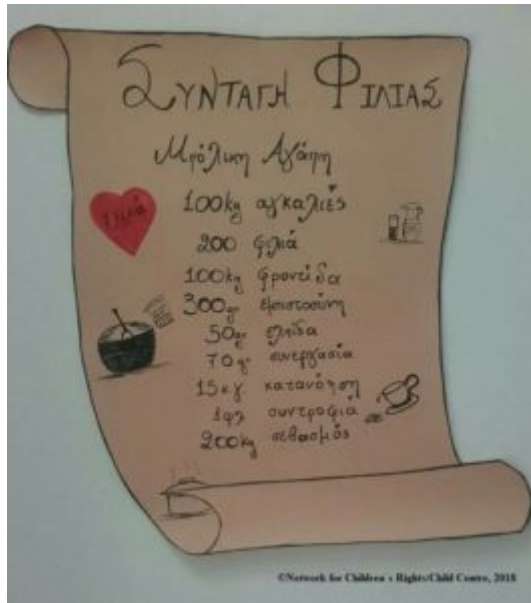 ΣΥΝΤΑΓΗ ΦΙΛΙΑΣ
Μπόλικη Αγάπη
100kg αγκαλιές
200 φιλιά
100kg φροντίδα
300gr εμπιστοσύνη
50gr ελπίδα
70gr συνεργασία
15κγ. κατανόηση
1φλ συντροφιά
200kg σεβασμός
©Network for Children's Rights/Child Centre, 2018